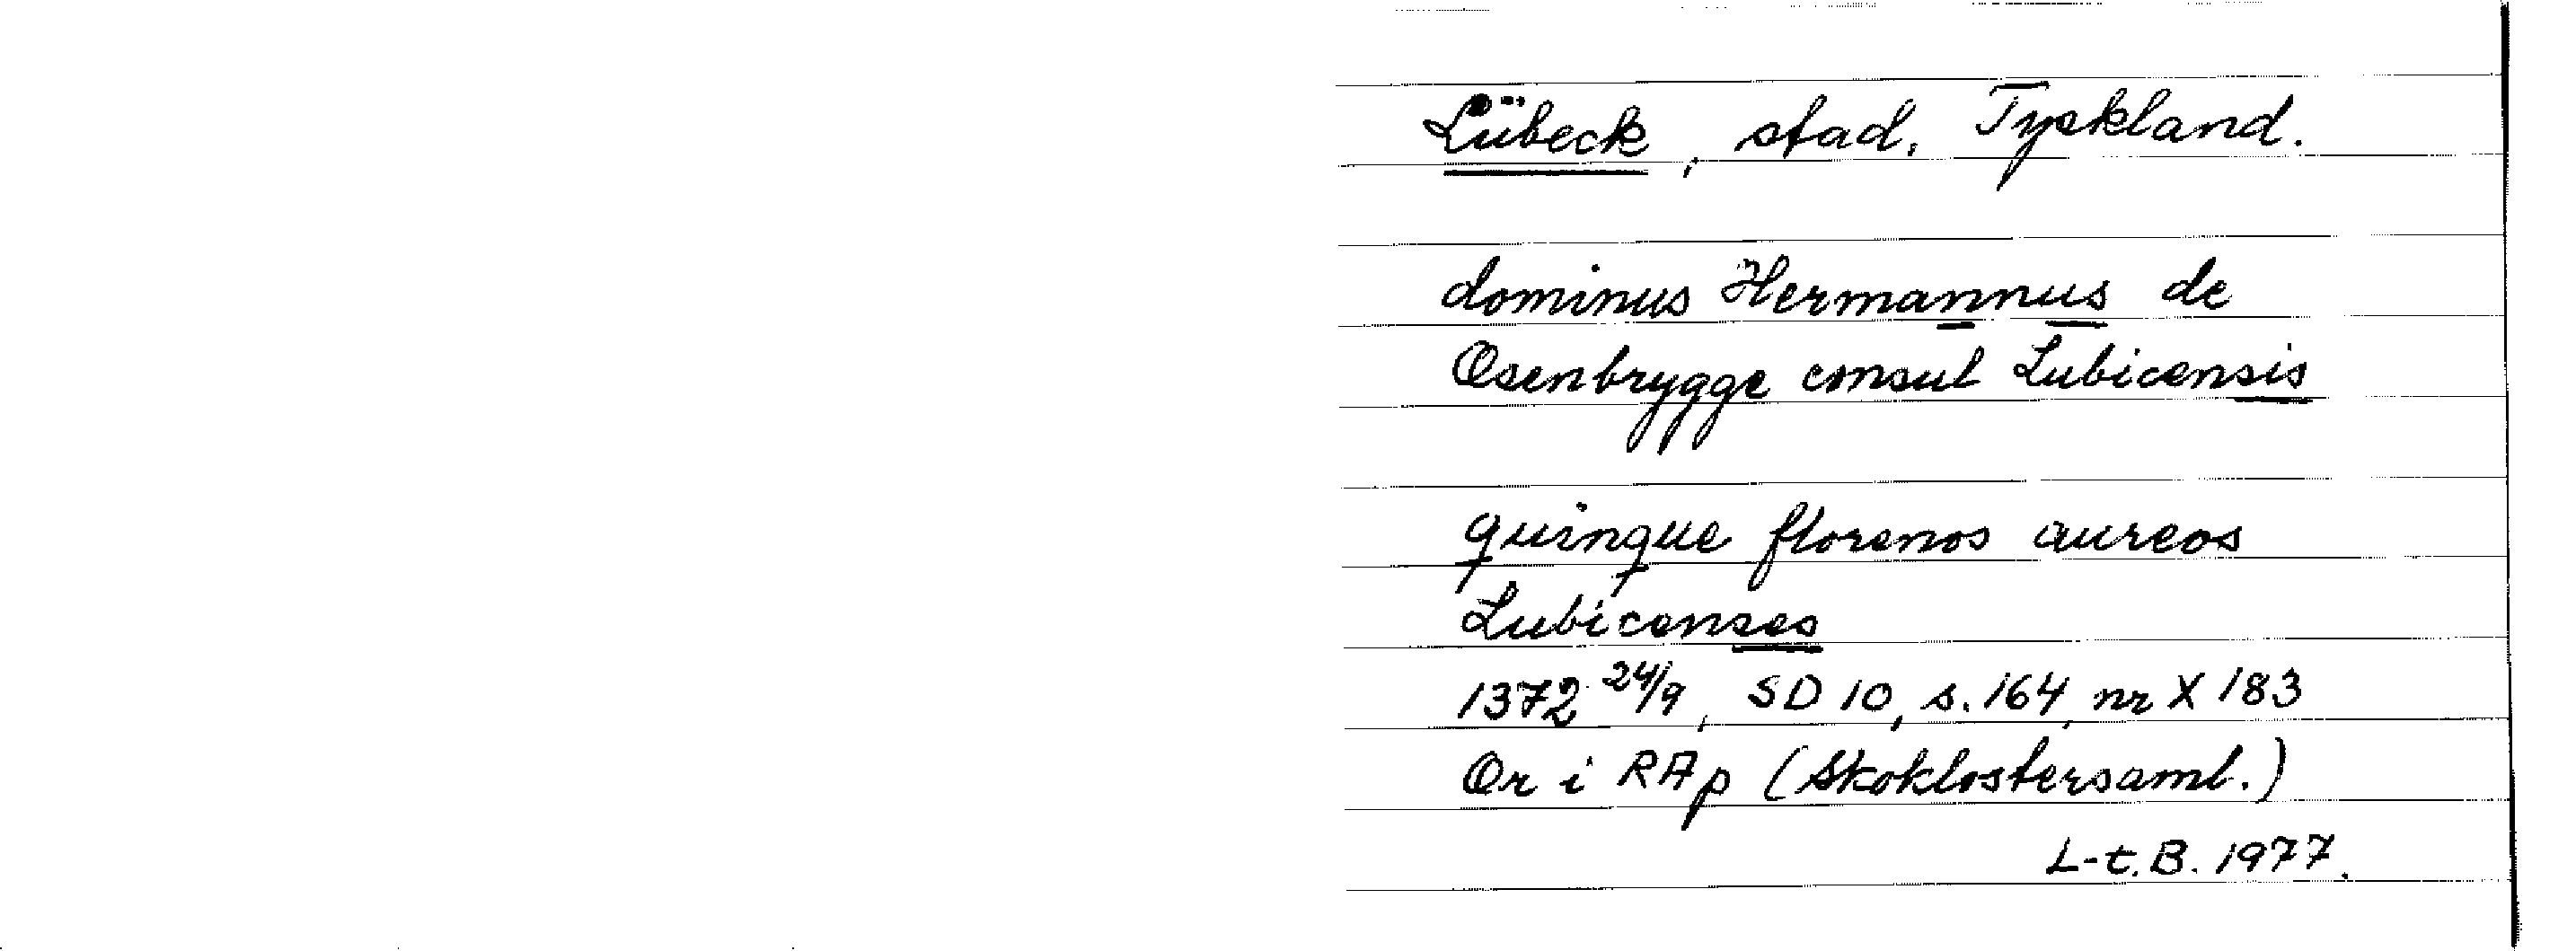 Lübeck, stad, Tyskland.
dominus Hermannus de
Osenbrygge consul Lubicensis
quinque florenos aureos
Lubicenses
1372 24/9, SD 10, s. 164, nr X 183
Or i RAp (Skoklostersaml.)
L-t. B. 1977.